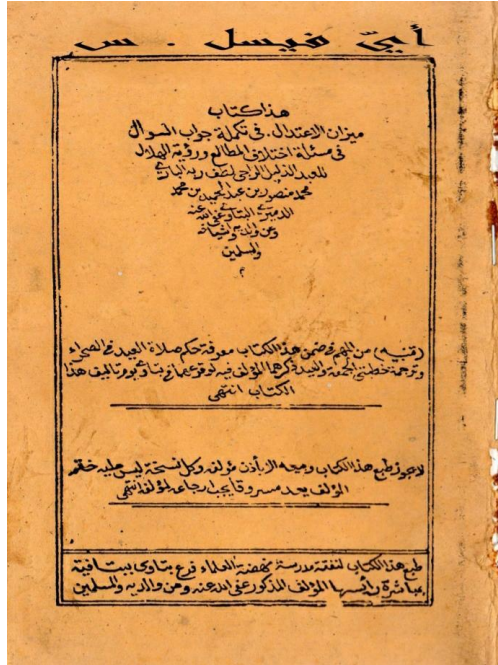 أبيّ فيسل . س
هذا كتاب
ميزان الاعتدال. فى تكملة جواب السوال
فى مسئلة اختلاف المطالع ورؤية الهلال
للعبد الذليل الراجى لطف ربه البارى
محمد منصور بن عبد الحميد بن محمد
الدميرى البتاوى عفى الله عنه
وعن والديه واشياخه
والمسلمين
م
(تنبيه) من المهم فى ضمن هذا الكتاب معرفة حكم صلاة العيد فى الصحراء
وترجمة خطبتى الجمعة والعيد ذكرهما المؤلف فيه لوقوعهما فى بتاوى تأليف هذا
الكتاب انتهى
لا يجوز طبع هذا الكتاب وبيعه الا بأذن مؤلفه وكل نسخة ليس عليه ختم
المؤلف يعد مسروقا يجب ارجاعه لمؤلفه انتهى
طبع هذا الكتاب لنفقة مدرسة نهضة العلماء فرع بتاوى
بمباشرة رائسها المؤلف المذكور عفى الله عنه وعن والديه والمسلمين